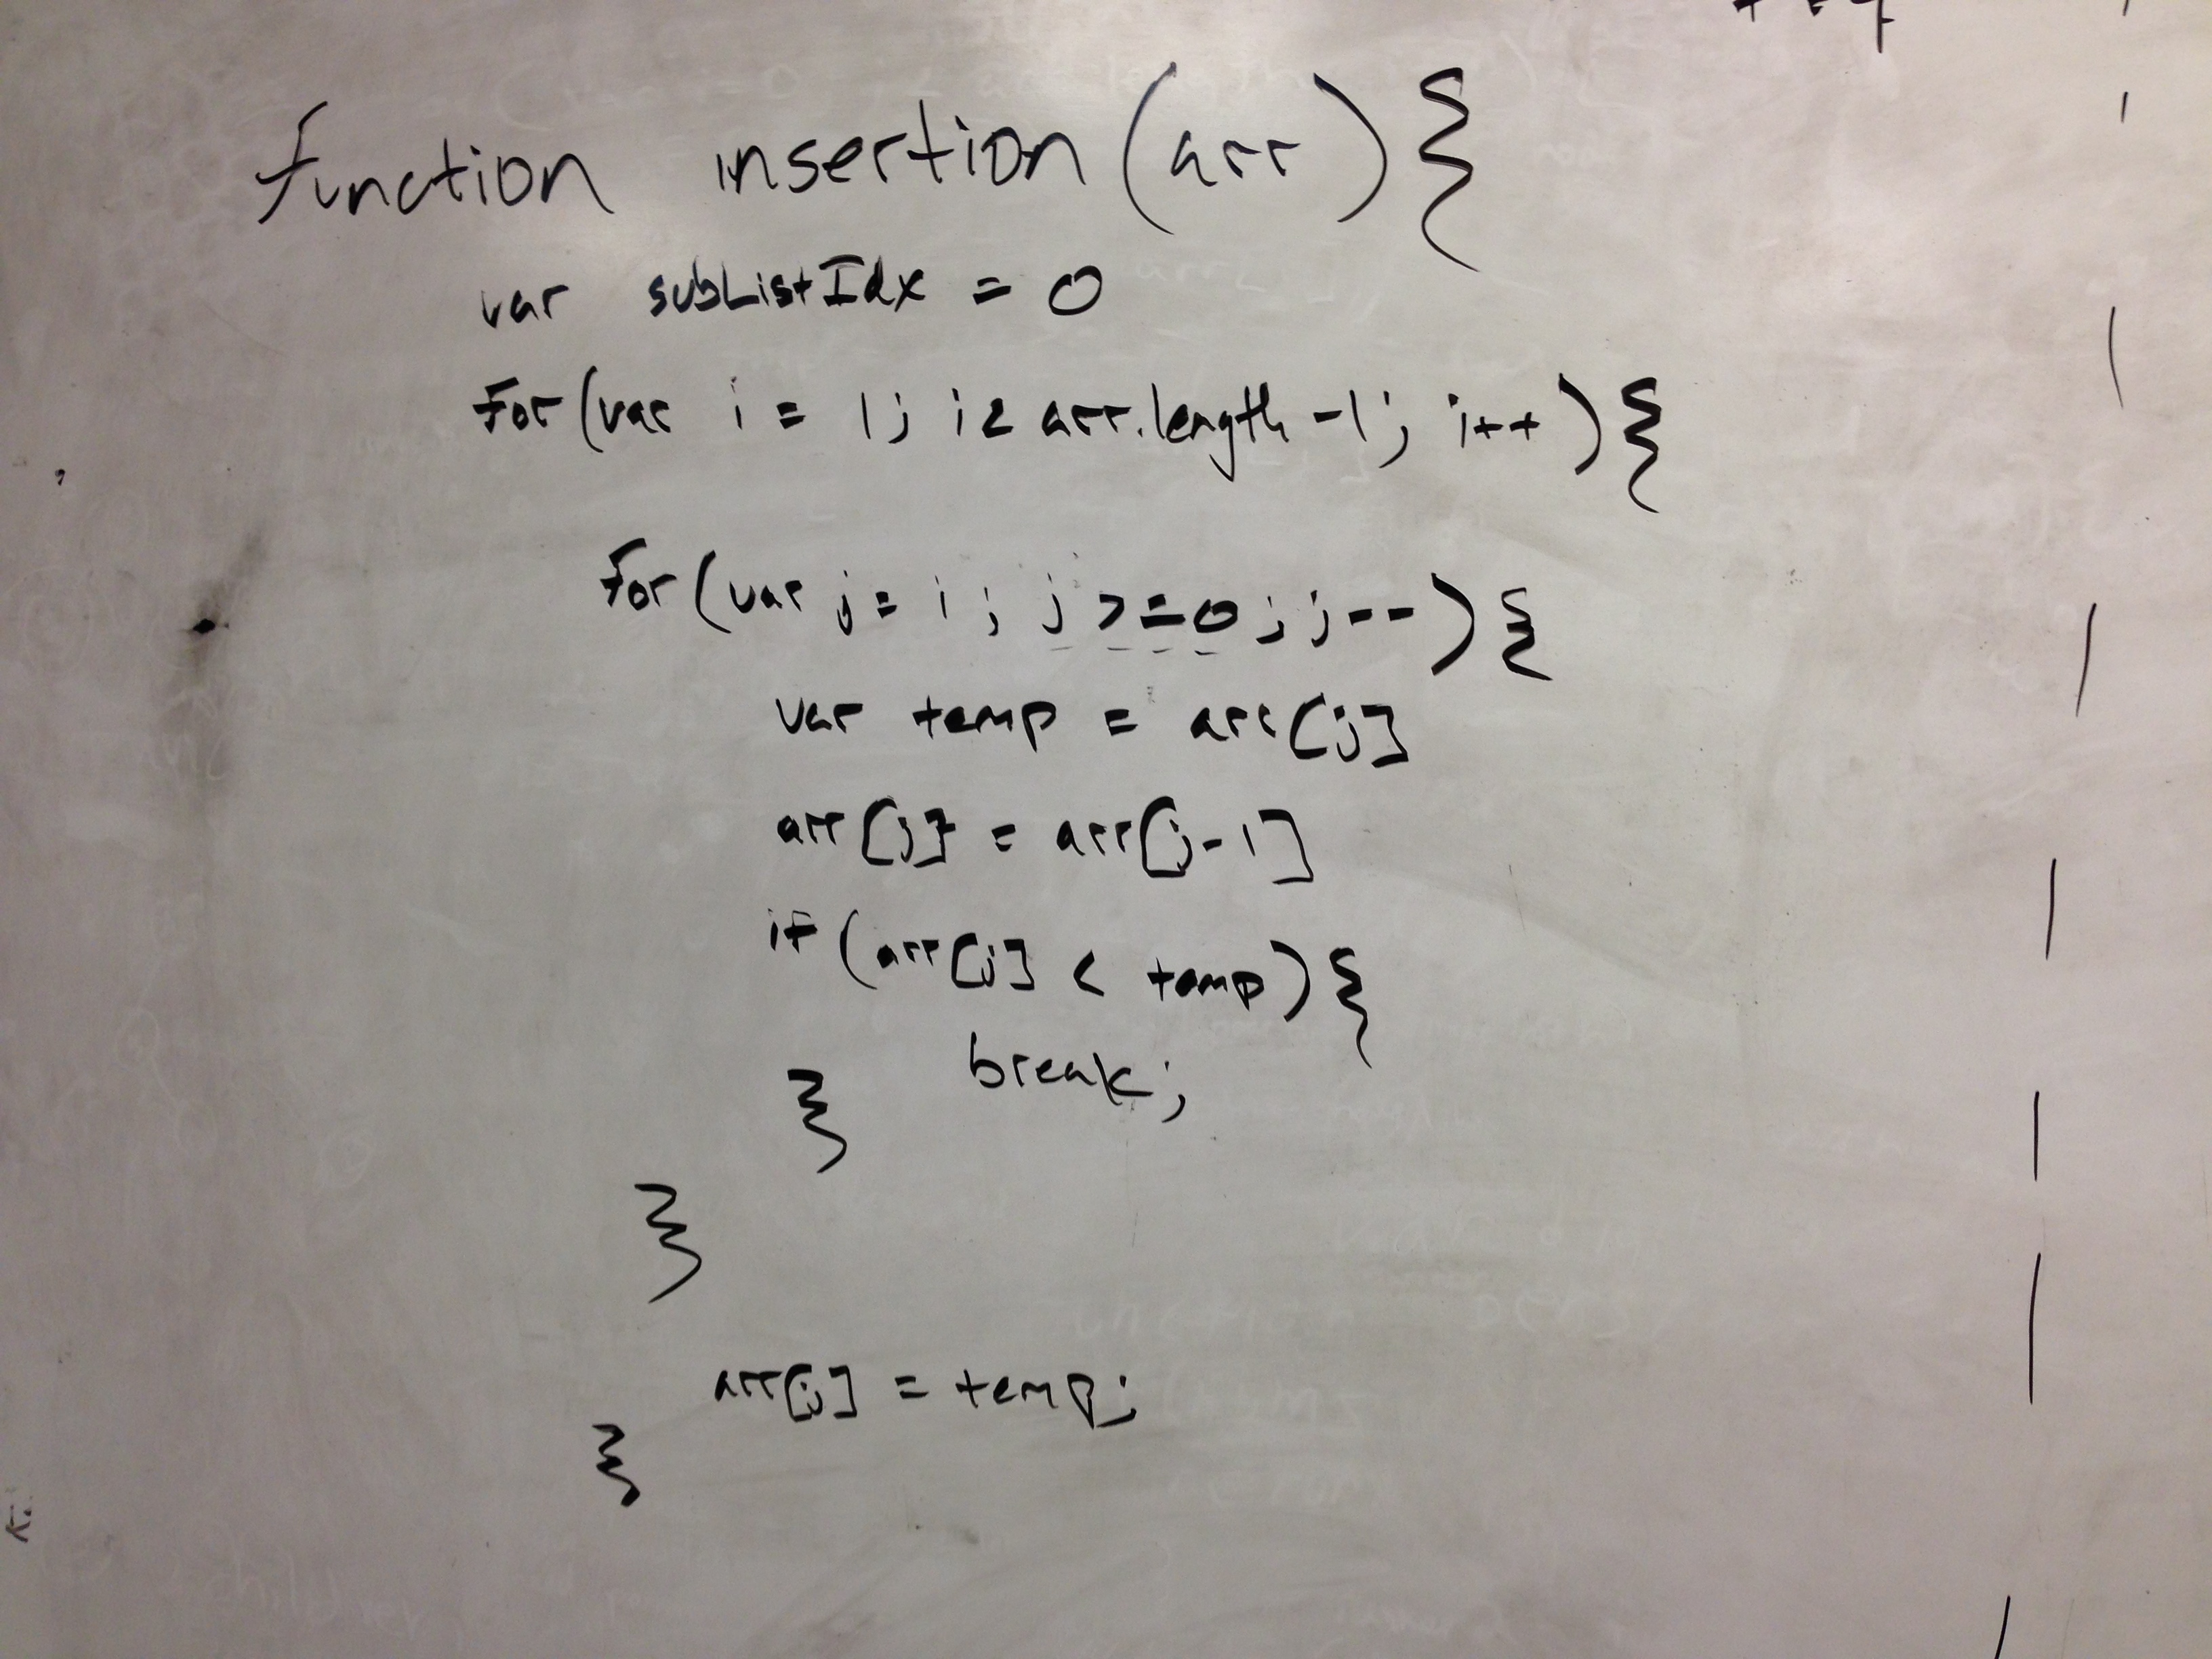 function insertion(arr){
var subListIdx = 0
for(var i = 1; i < arr.length -1; i++){
for(var j = i; j >=0; j--){
var temp = arr[j]
arr[j] = arr[j-1]
if(arr[j] < temp){
break;
}
}
arr[j] = temp;
}